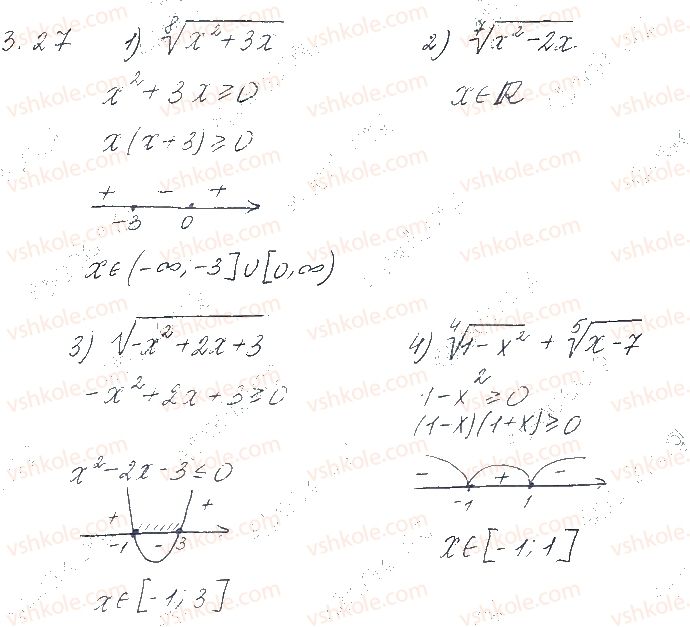 3.27 1) ⁸√(x² + 3x)
x² + 3x ≥ 0
x(x+3) ≥ 0
+ - +
-3 0
x ∈ (-∞, -3] ∪ [0, ∞)
2) ⁷√(x² - 2x).
x ∈ R
3) √(-x² + 2x + 3)
-x² + 2x + 3 ≥ 0
x² - 2x - 3 ≤ 0
+ - +
-1 3
x ∈ [-1; 3]
4) ⁴√(1 - x²) + ⁵√(x - 7)
1 - x² ≥ 0
(1-x)(1+x) ≥ 0
- + -
-1 1
x ∈ [-1; 1]
vshkole.com